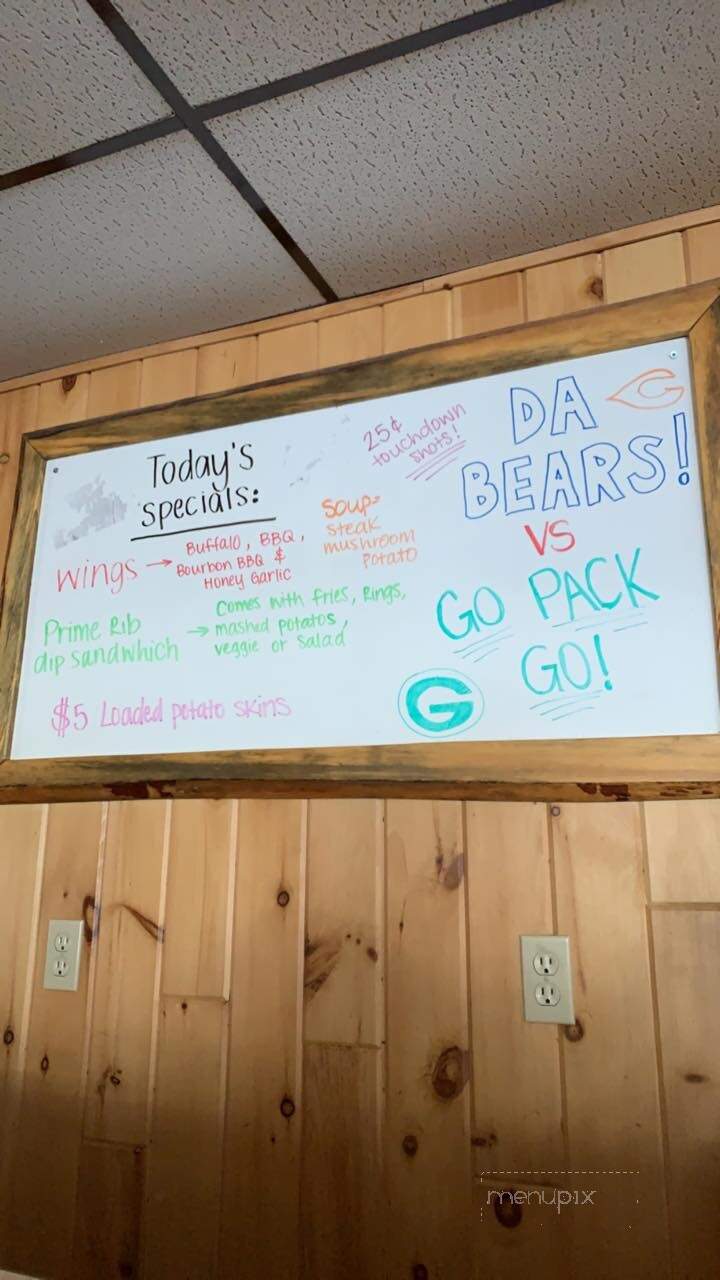 Today's
specials:
Wings → Buffalo, BBQ,
Bourbon BBQ &
Honey Garlic
Prime Rib
dip sandwhich →
Comes with fries, Rings,
mashed potatos,
veggie or salad
$5 Loaded potato skins
soup-
steak
mushroom
potato
25¢
touchdown
shots!
DA
BEARS!
C
VS
GO PACK
GO!
G
menupix